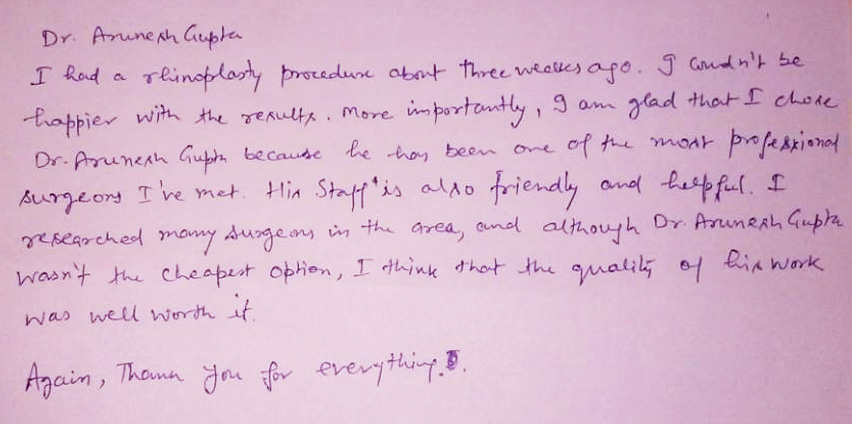 Dr. Arunesh Gupta
I had a rhinoplasty procedure about three weekes ago. I coudn't be
happier with the results. More importantly, I am glad that I chose
Dr. Arunesh Gupta because he has been one of the most professional
surgeons I've met. His Staff is also friendly and helpful. I
researched many surgeons in the area, and although Dr. Arunesh Gupta
wasn't the cheapest option, I think that the quality of his work
was well worth it.
Again, Thank you for everything.